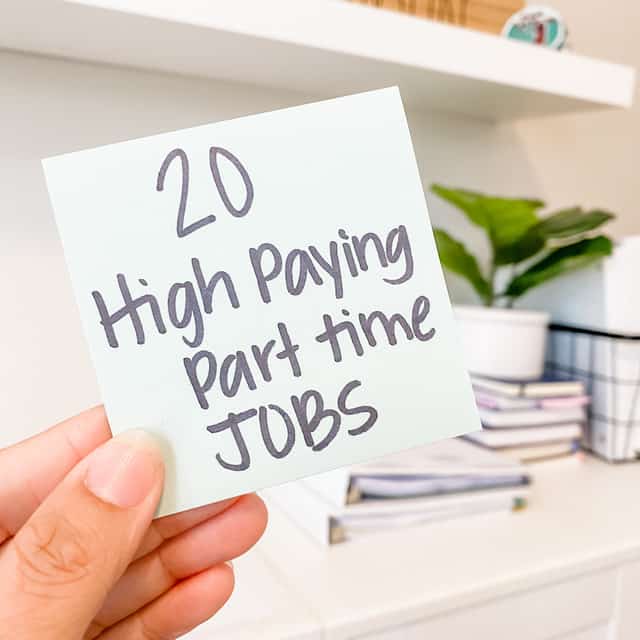 20
High Paying
Part time
JOBS